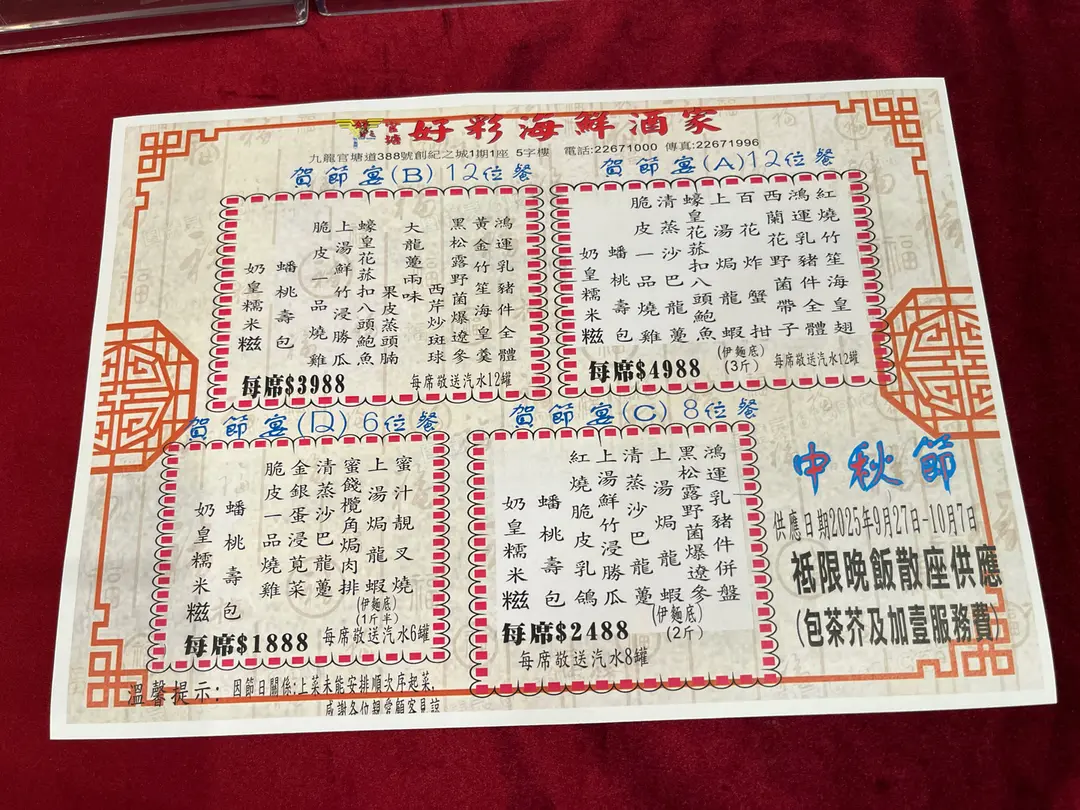 官塘 好彩海鮮酒家
九龍官塘道388號創紀之城1期1座 5字樓 電話:22671000 傳真:22671996
賀節宴(A)12位餐
紅燒竹笙海皇翅
鴻運乳豬件全體
西蘭花野菌帶子
百花炸蟹拑
上湯焗龍蝦
(伊麵底)
(3斤)
蠔皇花菰扣八頭鮑魚
清蒸沙巴龍躉
脆皮一品燒雞
蟠桃壽包
奶皇糯米糍
每席$4988
每席敬送汽水12罐
賀節宴(B)12位餐
鴻運乳豬件全體
黃金竹笙海皇羹
黑松露野菌爆遼參
西芹炒斑球
大龍躉兩味
果皮蒸頭腩
蠔皇花菰扣八頭鮑魚
上湯鮮竹浸勝瓜
脆皮一品燒雞
蟠桃壽包
奶皇糯米糍
每席$3988
每席敬送汽水12罐
賀節宴(C)8位餐
鴻運乳豬件併盤
黑松露野菌爆遼參
上湯焗龍蝦
(伊麵底)
(2斤)
清蒸沙巴龍躉
上湯鮮竹浸勝瓜
紅燒脆皮乳鴿
蟠桃壽包
奶皇糯米糍
每席$2488
每席敬送汽水8罐
賀節宴(D)6位餐
蜜汁靚叉燒
上湯焗龍蝦
(伊麵底)
(1斤半)
蜜餞欖角焗肉排
清蒸沙巴龍躉
金銀蛋浸莧菜
脆皮一品燒雞
蟠桃壽包
奶皇糯米糍
每席$1888
每席敬送汽水6罐
中秋節
供應日期2025年9月27日-10月7日
祗限晚飯散座供應
(包茶芥及加壹服務費)
溫馨提示: 因節日關係:上菜未能安排順次序起菜,
感謝各位親愛顧客見諒